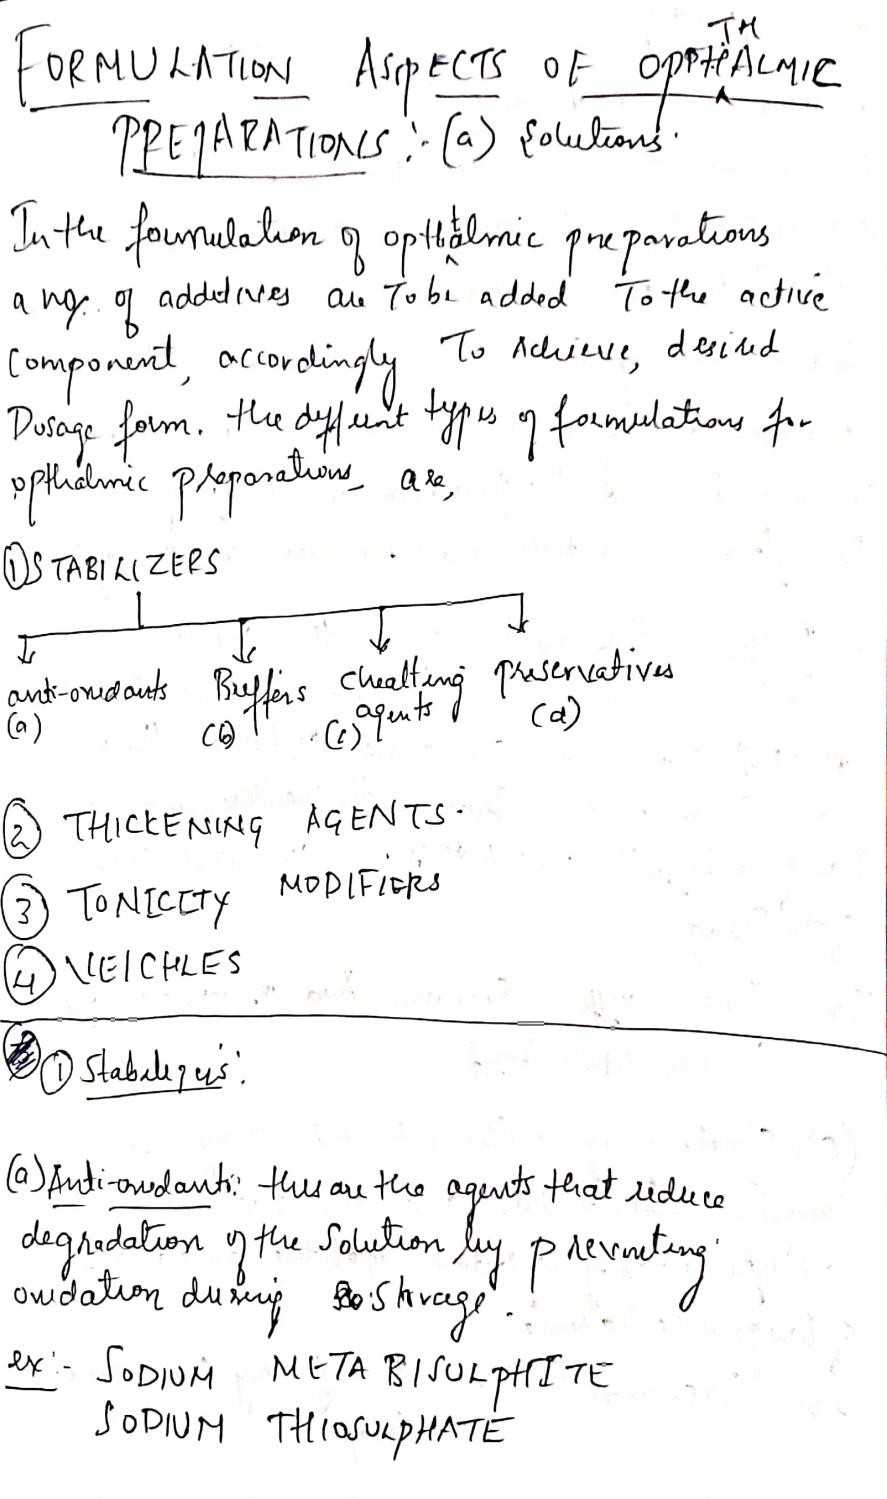 FORMULATION ASPECTS OF OPHTHALMIC
PREPARATIONS :- (a) Solutions.
In the formulation of opthtalmic preparations
a no. of additives are To be added To the active
Component, accordingly To Achieve, desired
Dosage form. the different types of formulations for
opthalmic preparations are,
① STABILIZERS
anti-oxidants Buffers chealting agents preservatives
(a) (b) (c) (d)
② THICKENING AGENTS.
③ TONICITY MODIFIERS
④ VEICHLES
① Stabilizers:
(a) Anti-oxidants: thes are the agents that reduce
degradation of the Solution by preventing
oxidation during storage.
ex:- SODIUM META BISULPHITE
SODIUM THIOSULPHATE